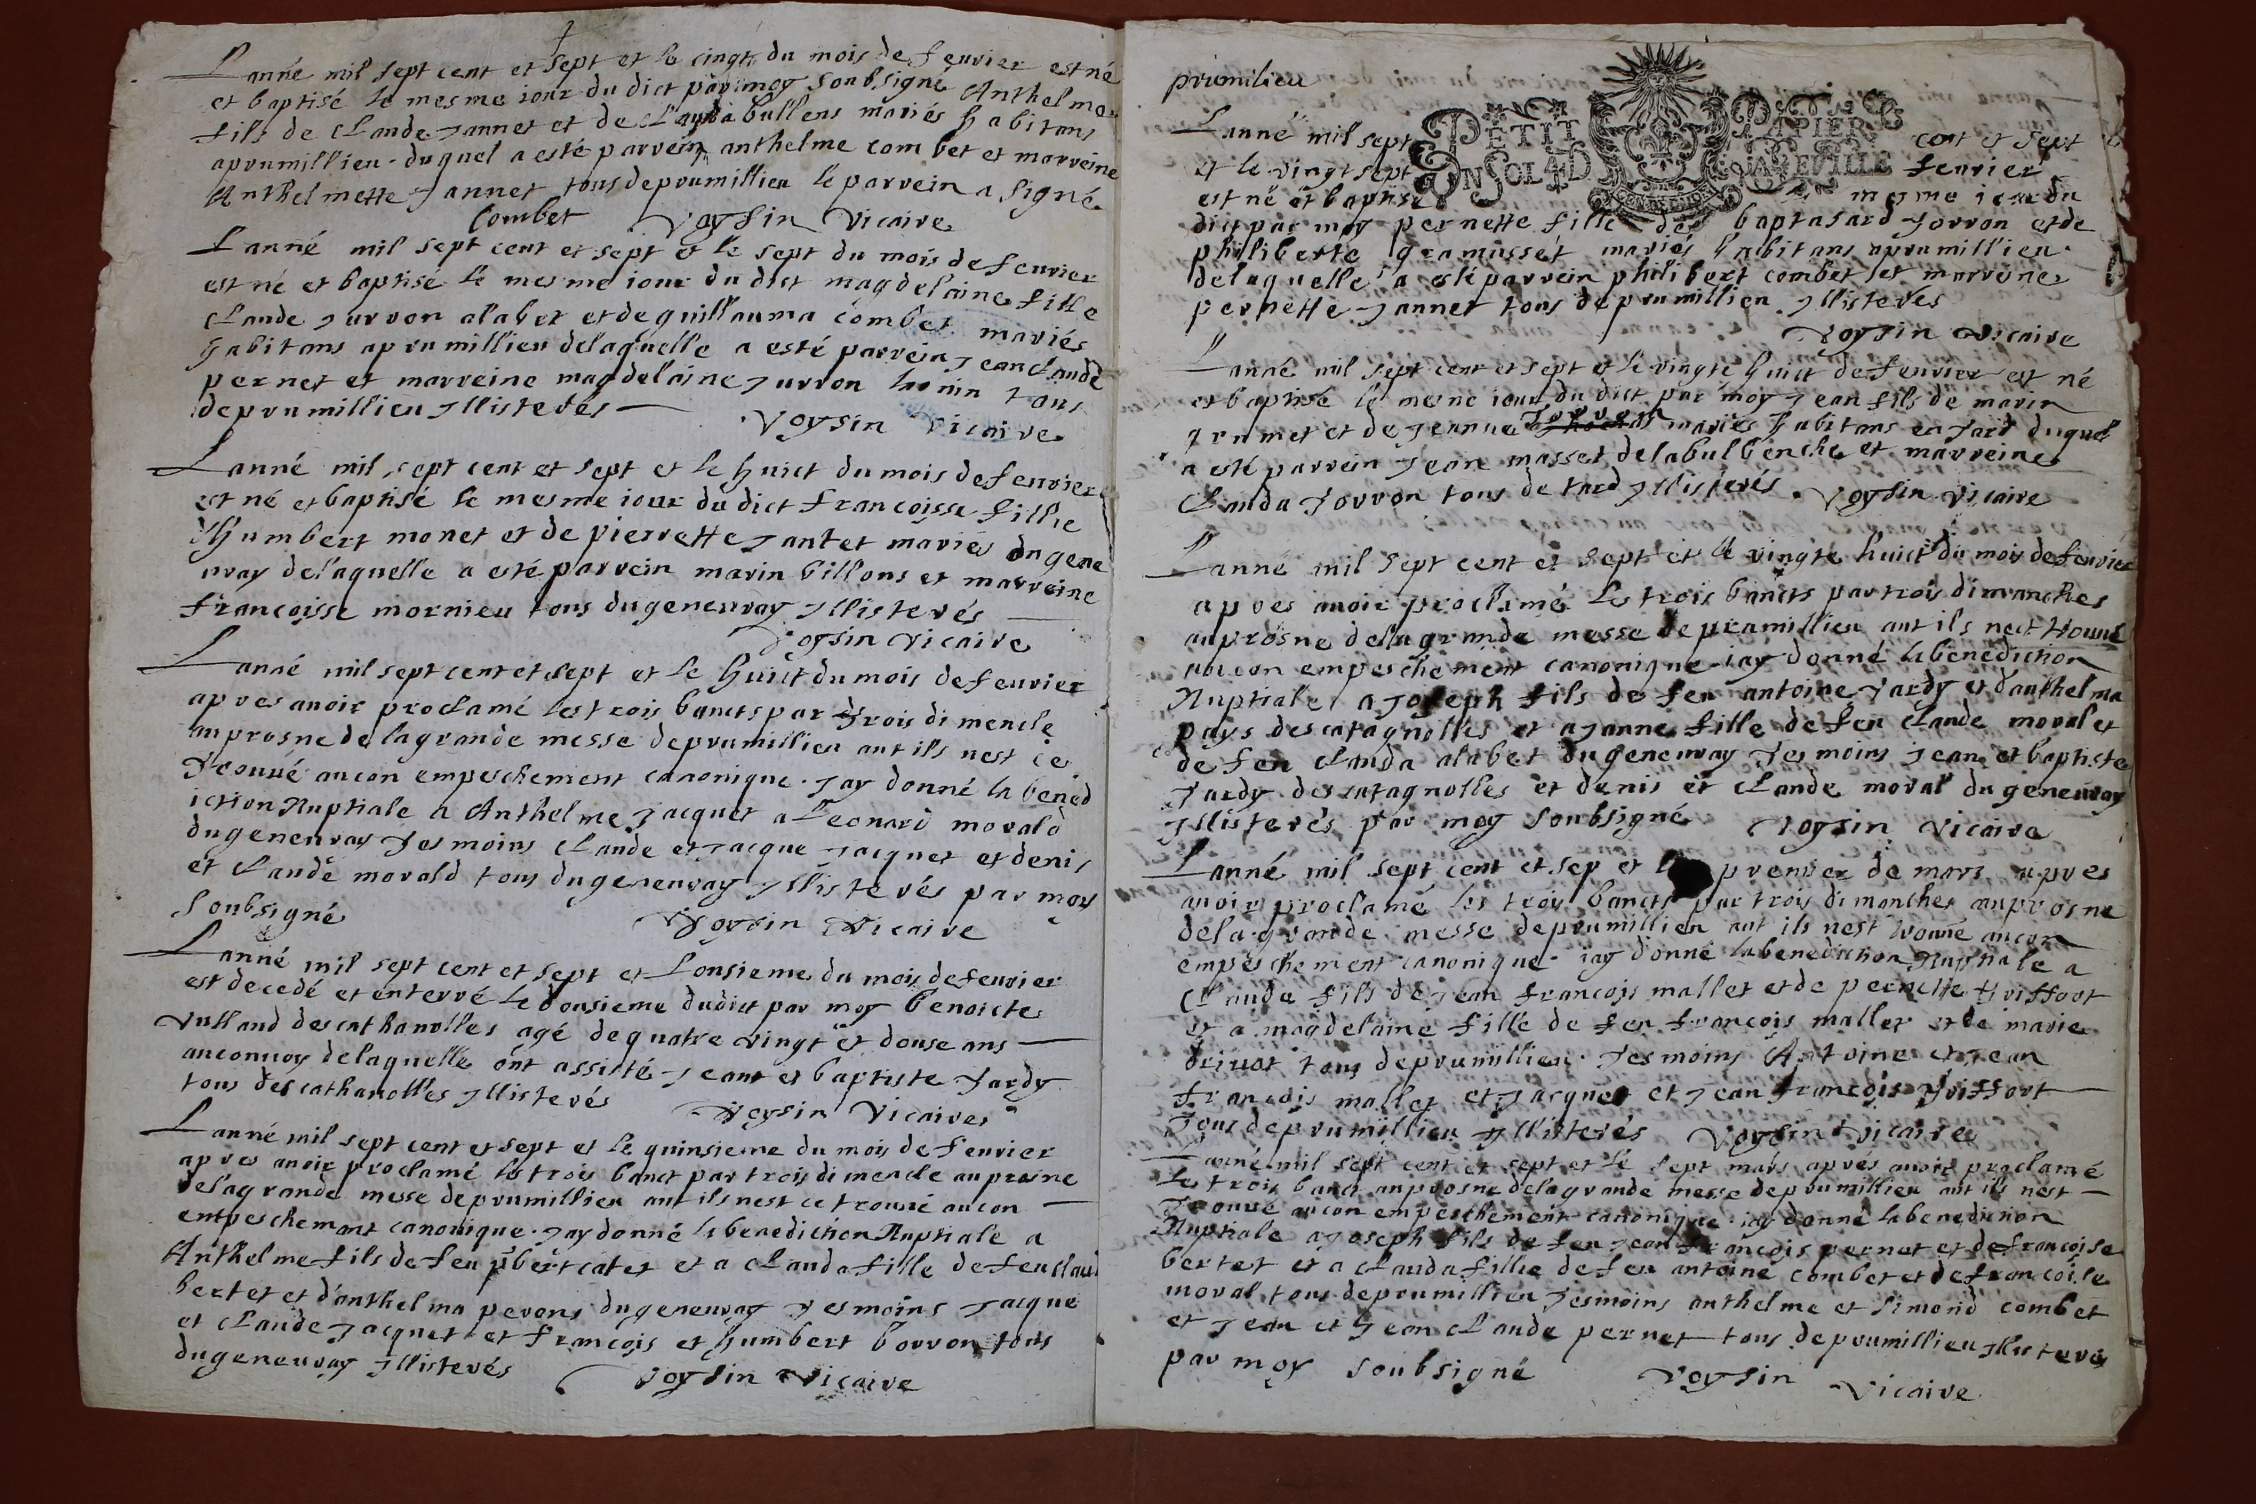 Lanné mil sept cent et sept et le cinqt du mois de feuvier est né
et baptisé le mesme iour du dict par moy soubsigné Anthelme
fils de Claude Jannet et de Clauda bullens mariés habitans
aprumillieu. duquel a esté parvein anthelme combet et marveine
Anthelmette Jannet tous de prumillieu le parvein a signé
Combet Voysin vicaire
Lanné mil sept cent et sept et le sept du mois de feuvier
est né et baptisé le mesme iour du dict magdelaine fille
Claude Jurron alabet et de guillauma combet mariés
habitans aprumillieu delaquelle a esté parvein Jean claude
pernet et marreine magdelaine Jurron tous
de prumillieu Illisterés
Voysin vicaire
Lanné mil sept cent et sept et le huict du mois de feuvier
est né et baptisé le mesme iour du dict francoisse fillie
Humbert monet et de pierrette Jantet mariés du gene
uray delaquelle a esté parvein marin billons et marveine
francoisse mornieu tous du geneuray Illisterés
Voysin vicaire
Lanné mil sept cent et sept et le huict du mois de feuvier
apres auoir proclamé les trois bancts par trois dimencle
au prosne de la grande messe de prumillieu aut ils nest ce
trouué aucon empeschement canonique. Jay donné la bened
iction Nuptiale a Anthelme Jacquet a Leonard morald
du geneuray Tesmoins Claude et Jacque Jacquet et denis
et Claude morald tous du geneuray Illisterés par moy
soubsigné Voysin vicaire
Lanné mil sept cent et sept et Lonsieme du mois de feuvier
est decedé et enterré le dousieme dudict par moy benoicte
vulland des catharolles agé de quatre vingt et douse ans
auconuoy delaquelle ont assisté Jeant et baptiste Tardy
tous des catharolles Illisterés Voysin vicaire
Lanné mil sept cent et sept et le quinsieme du mois de feuvier
apres auoir proclamé les trois banct par trois dimencle au prosne
de la grande messe de prumillieu aut ils nest ce trouué aucon
empeschemant canonique. Jay donné la benediction Nuptiale a
Anthelme fils de feu pbert catet et a Clauda fille de feu claud
bertet et d'anthelma perons du geneuray Tesmoins Jacque
et Claude Jacquet et francois et humbert borron tous
du geneuray Illisterés Voysin vicaire
priumilieu
PETIT PAPIER
UN SOL 4 D LA FEVILLE
Lanné mil sept cent et sept
et le vingt sept feuvier
est né et baptisé le mesme iour du
dict par moy pernette fille de baptasard Jorron et de
philiberte gramusset mariés habitans aprumillieu.
delaquelle a esté parvein philibert combet et marveine
pernette Jannet tous de prumillieu Illisterés
Voysin vicaire
Lanné mil sept cent et sept et le vingte huict de feuvier est né
et baptisé le mesme iour du dict par moy Jean fils de marin
grumet et de Jeanne Jorron mariés habitans en Tard duquel
a esté parvein Jean masset delabulbenche et marveine
Clauda Jorron tous de tard Illisterés. Voysin vicaire
Lanné mil sept cent et sept et le vingte huict du mois de feuvier
apres auoir proclamé les trois bancts par trois dimanches
au prosne de la grande messe de prumillieu aut ils nect trouué
aucon empeschement canonique. iay donné la benediction
Nuptiale a Joseph fils de feu antoine Tardy et d'anthelma
pays des catagnolles et a Janne fille de feu claude moral et
de feu Clauda alabet du geneuray Tesmoins Jean et baptiste
Tardy des catagnolles et denis et Claude moral du geneuray
Illisterés par moy soubsigné Voysin vicaire
Lanné mil sept cent et sep et le premier de mars apres
auoir proclamé les trois bancts par trois dimanches au prosne
de la grande messe de prumillieu aut ils nest trouué aucon
empeschement canonique. iay donné la benediction Nuptiale a
Claude fils de Jean francois mallet et de pernette triffort
et a magdelaine fille de feu francois mallet et de marie
briuat tous de prumillieu. Tesmoins Antoine et Jean
francois mallet et Jacquet et Jean francois triffort
Tous de prumillieu Illisterés Voysin vicaire
Lanné mil sept cent et sept et le sept mars aprés auoir proclamé
les trois banct au prosne de la grande messe de prumillieu aut ils nest
trouué aucon empeschement canonique iay donné la benediction
Nuptiale a Joseph fils de feu Jean francois pernet et de francoise
bertet et a clauda fillie de feu antoine combet et de francoise
moral tous de prumillieu Tesmoins anthelme et simond combet
et Jean et Jean Claude pernet tous de prumillieu Illisterés
par moy soubsigné Voysin vicaire